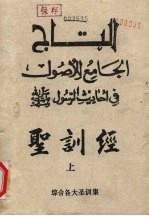 التاج
الجامع للأصول
في أحاديث الرسول ﷺ
聖訓經
上
綜合各大圣訓集